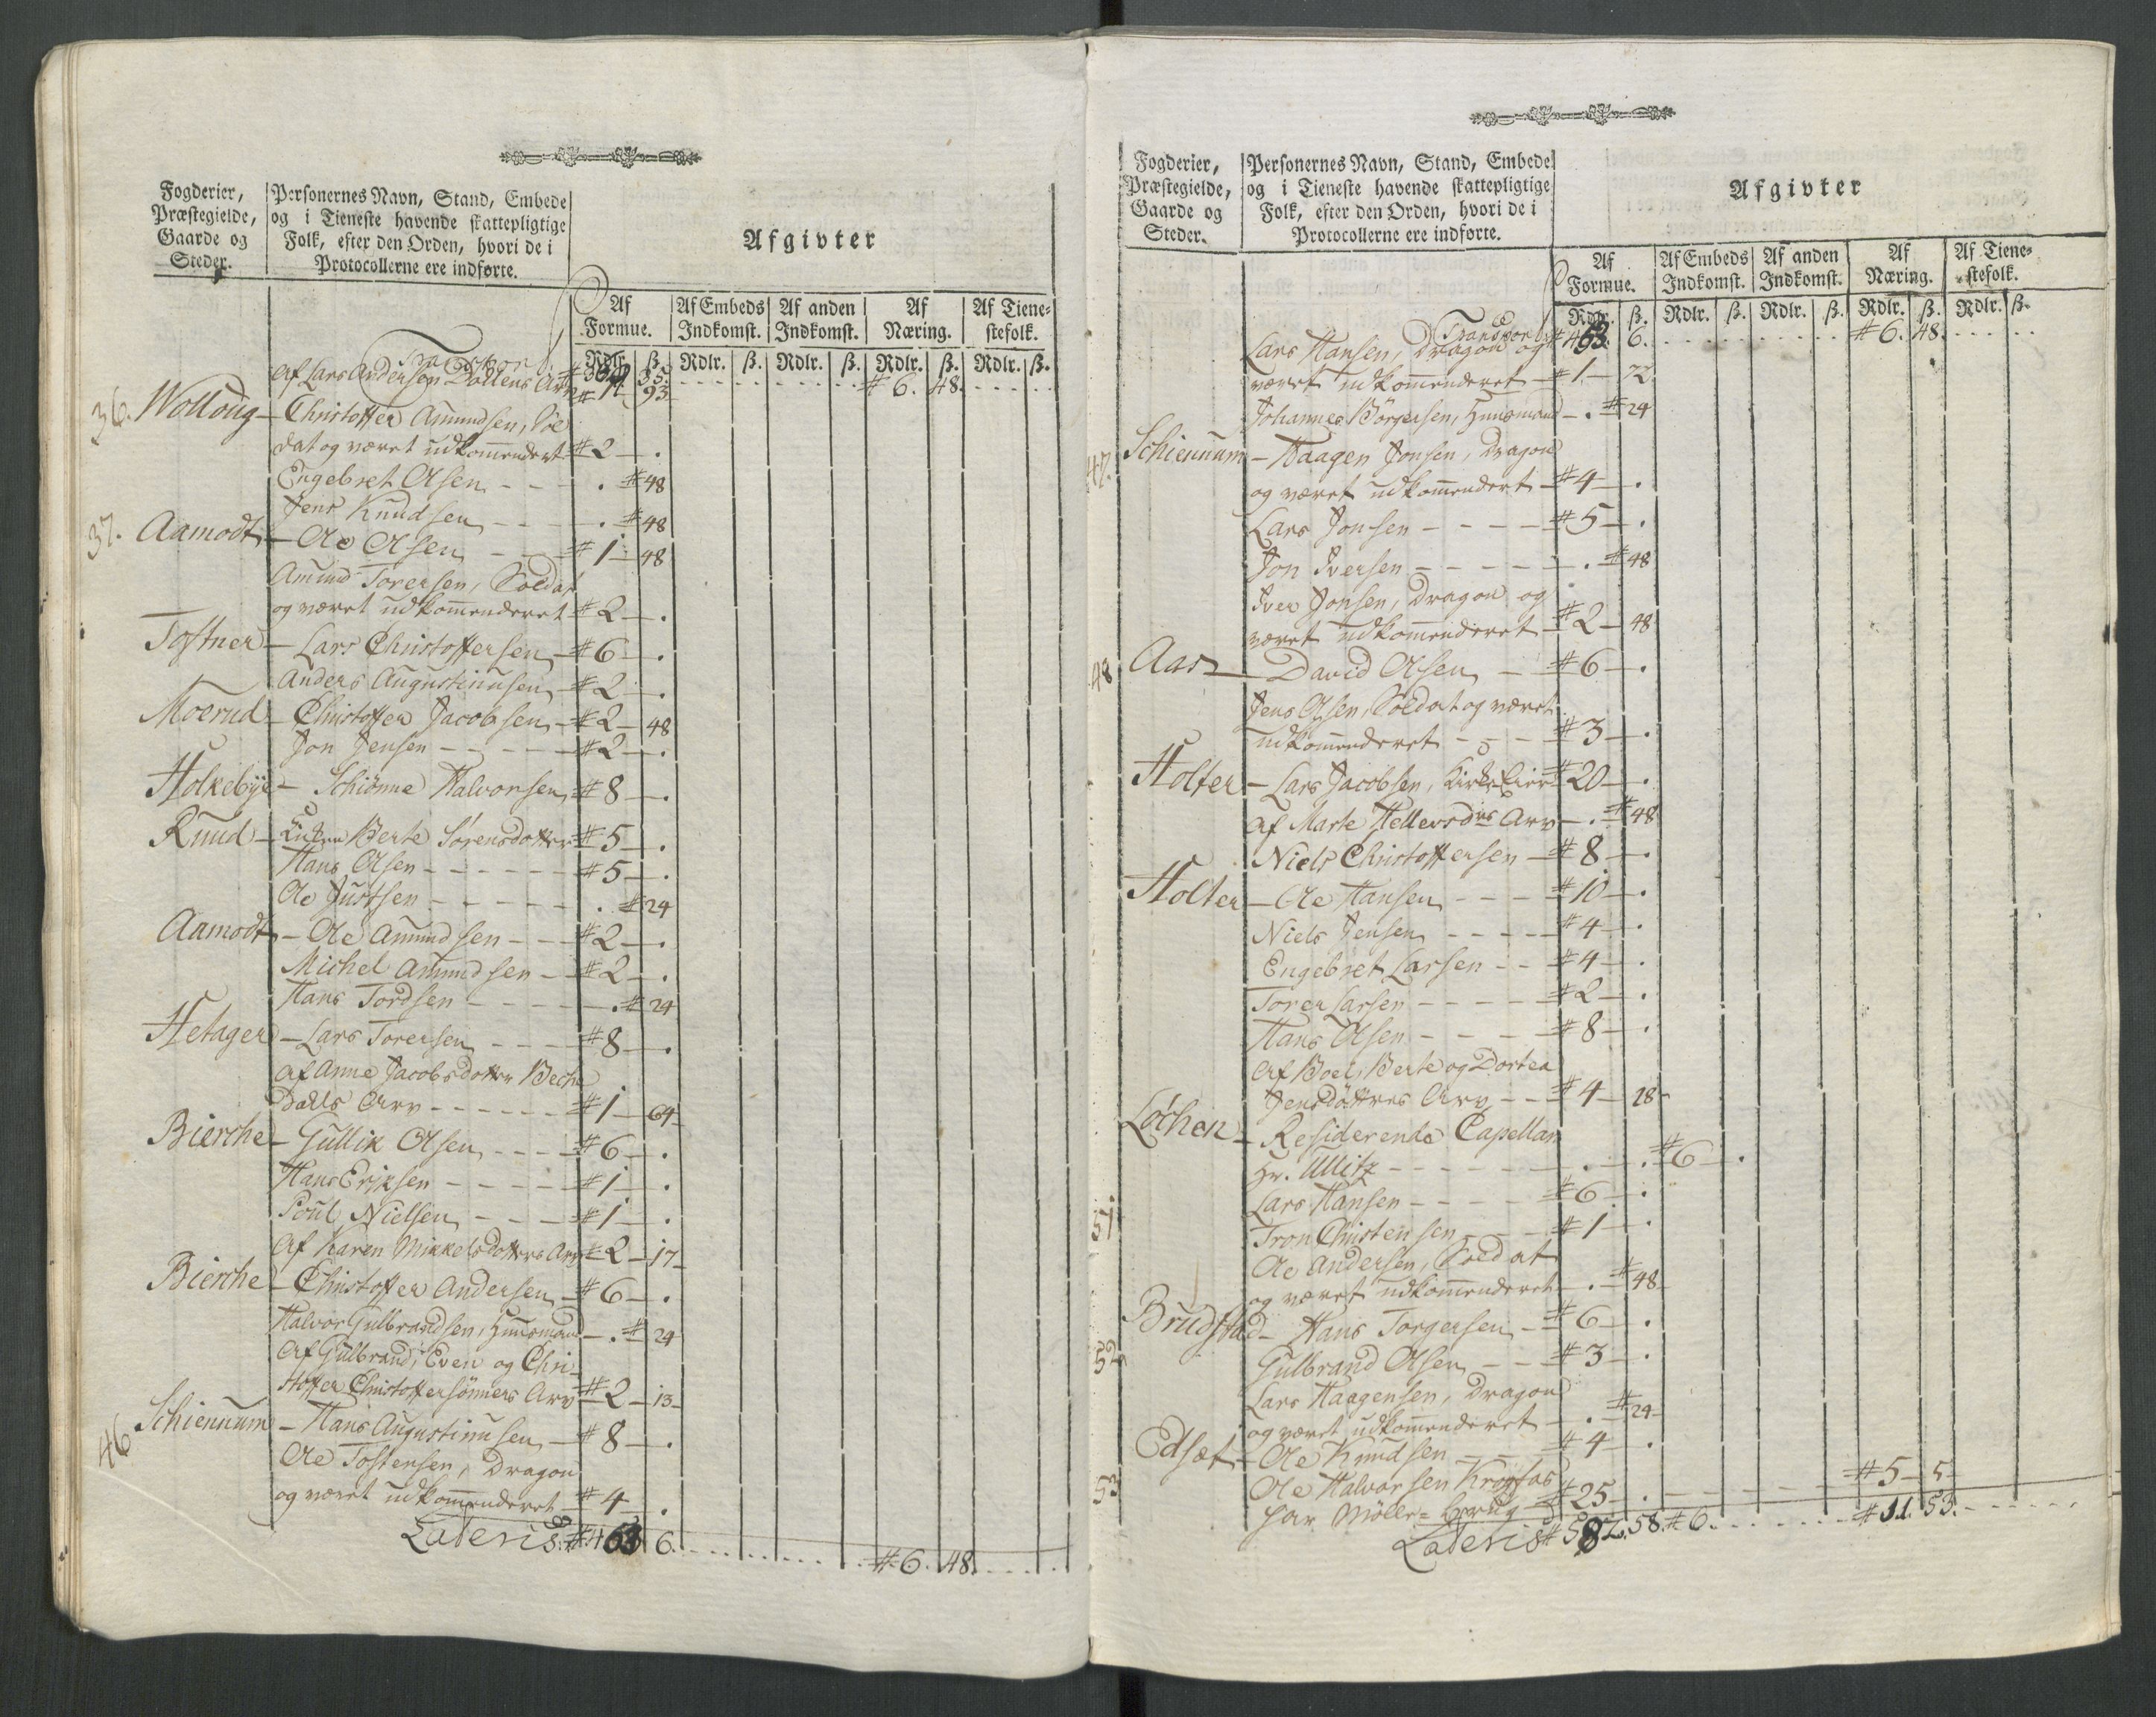 Fogderier,
Præstegielde,
Gaarde og
Steder.
Personernes Navn, Stand, Embede
og i Tieneste havende skattepligtige
Folk, efter den Orden, hvori de i
Protocollerne ere indførte.
Afgivter
Af Formue.
Af Embeds Indkomst.
Af anden Indkomst.
Af Næring.
Af Tienestefolk.
Rdlr. ß. Rdlr. ß. Rdlr. ß. Rdlr. ß. Rdlr. ß.
Transport 35. #6. 48.
Af Lars Andersen Dallens Arv #1 93
36. Wolloug - Christoffer Amundsen, Sol
dat og været udkommendert #2 .
Engebret Olsen - - . #48
Jens Knudsen - - . #48
37. Aamodt - Ole Olsen - - #1 48
Amund Torersen, Soldat
og været udkommenderet #2 .
Toftner - Lars Christoffersen #6 .
Anders Augustinusen #2 .
Moerud - Christoffer Jacobsen #2 48
Jon Jensen - - #2 .
Holkebÿe - Schiønne Halvorsen #8 .
Ruud - Enken Berte Sørensdotter #5 .
Hans Olsen - - #5 .
Ole Justsen - - . #24
Aamodt - Ole Amundsen - - #2 .
Michel Amundsen - #2 .
Hans Tordsen - - . #24
Hetager - Lars Torersen - - #8 .
Af Anne Jacobsdotter Beche
Dalls Arv - - #1 64
Bierche - Gullik Olsen - - #6 .
Hans Eriksen - - #1 .
Poul Nielsen - - #1 .
Af Karen Mikkelsdotters Arv #2 17
Bierche - Christoffer Andersen #6 .
Halvor Gulbrandsen, Huusmand . #24
Af Gulbrand, Even og Chri-
stoffer Christoffersønners Arv #2 13
46 Schiennum - Hans Augustinusen #8 .
Ole Tostensen, Dragon
og været udkommenderet #4 .
Lateris #463 6. #6. 48.
Fogderier,
Præstegielde,
Gaarde og
Steder.
Personernes Navn, Stand, Embede
og i Tieneste havende skattepligtige
Folk, efter den Orden, hvori de i
Protocollerne ere indførte.
Afgivter
Af Formue.
Af Embeds Indkomst.
Af anden Indkomst.
Af Næring.
Af Tienestefolk.
Rdlr. ß. Rdlr. ß. Rdlr. ß. Rdlr. ß. Rdlr. ß.
Transport #463. 6. #6. 48.
Lars Hansen, Dragon og
været udkommenderet #1 72
Johannes Børgersen, Huusmand . #24
47. Schiennum - Haagen Jonsen, Dragon
og været udkommendert #4 .
Lars Jonsen - - #5 .
Jon Iversen - - . #48
Iver Jonsen, Dragon og
været udkommenderet #2 48
48 Aas - David Olsen - #6 .
Jens Olsen, Soldat og været
udkommenderet - - #3 .
Holter - Lars Jacobsen, Kirke Eier #20 .
Af Marte Hellersdrs Arv . #48
Niels Christoffersen #8 .
Holter - Ole Hansen - - #10 .
Niels Jensen - - #4 .
Engebret Larsen - - #4 .
Torer Larsen - - #2 .
Hans Olsen - - #8 .
Af Boel, Berte og Dortea
Jensdøttres Arv - - #4 28
Løchen - Residerende Capellan
Hr. Ullitz - - . . #6 .
51 Lars Hansen - - #6 .
Tron Christensen - - #1 .
Ole Andersen, Soldat
og været udkommenderet . #48
Brudstad - Hans Torgersen - #6 .
52 Gulbrand Olsen - - #3 .
Lars Haagensen, Dragon
og været udkommenderet . #24
Edset - Ole Knudsen #4 .
53 Ole Halvorsen Krogfos
har Mølle-Brug #25 . #5 5
Lateris #582. 58. #6. #11. 53.